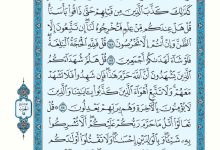 كَذَٰلِكَ كَذَّبَ ٱلَّذِينَ مِن قَبْلِهِمْ حَتَّىٰ ذَاقُوا۟ بَأْسَنَا
قُلْ هَلْ عِندَكُم مِّنْ عِلْمٍ فَتُخْرِجُوهُ لَنَآ إِن تَتَّبِعُونَ إِلَّا
ٱلظَّنَّ وَإِنْ أَنتُمْ إِلَّا تَخْرُصُونَ قُلْ فَلِلَّهِ ٱلْحُجَّةُ ٱلْبَٰلِغَةُ
فَلَوْ شَآءَ لَهَدَىٰكُمْ أَجْمَعِينَ قُلْ هَلُمَّ شُهَدَآءَكُمُ
ٱلَّذِينَ يَشْهَدُونَ أَنَّ ٱللَّهَ حَرَّمَ هَٰذَا فَإِن شَهِدُوا۟ فَلَا تَشْهَدْ
مَعَهُمْ وَلَا تَتَّبِعْ أَهْوَآءَ ٱلَّذِينَ كَذَّبُوا۟ بِـَٔايَٰتِنَا وَٱلَّذِينَ
لَا يُؤْمِنُونَ بِٱلْـَٔاخِرَةِ وَهُم بِرَبِّهِمْ يَعْدِلُونَ
قُلْ تَعَالَوْا۟ أَتْلُ مَا حَرَّمَ رَبُّكُمْ عَلَيْكُمْ أَلَّا تُشْرِكُوا۟
بِهِۦ شَيْـًٔا وَبِٱلْوَٰلِدَيْنِ إِحْسَٰنًا وَلَا تَقْتُلُوٓا۟ أَوْلَٰدَكُم